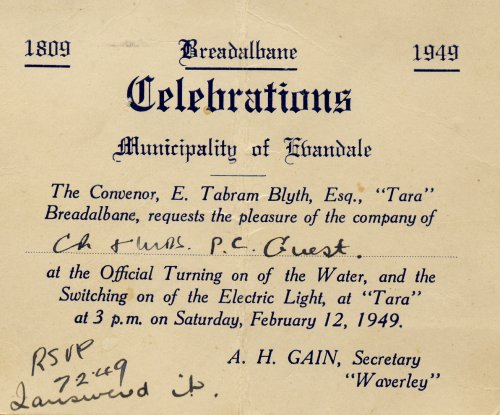 1809 Breadalbane 1949
Celebrations
Municipality of Evandale
The Convenor, E. Tabram Blyth, Esq., "Tara"
Breadalbane, requests the pleasure of the company of
Cr & Mrs. P.C. Guest.
at the Official Turning on of the Water, and the
Switching on of the Electric Light, at "Tara"
at 3 p.m. on Saturday, February 12, 1949.
A. H. GAIN, Secretary
"Waverley"
RSVP
7-2-49
I answered it.